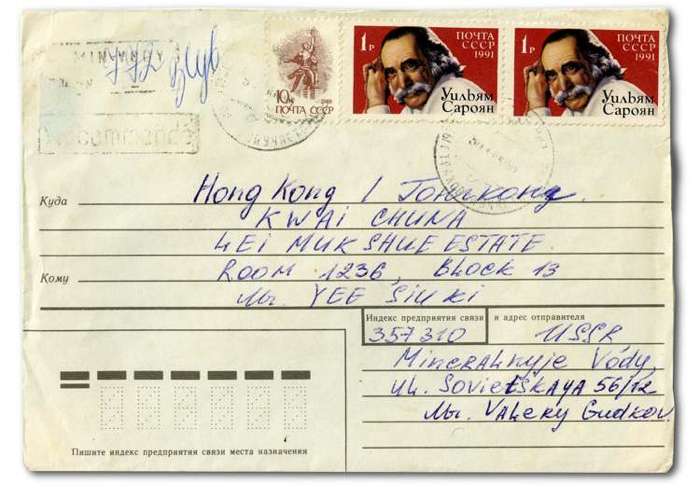 10к
ПОЧТА СССР
1р
ПОЧТА
СССР
1991
Уильям
Сароян
1р
ПОЧТА
СССР
1991
Уильям
Сароян
Куда Hong Kong / Гонгконг
KWAI CHUNA
LEI MUK SHUE ESTATE
Кому ROOM 1236, BLOCK 13
Mr. YEE SIU KI
Индекс предприятия связи и адрес отправителя
357310 USSR
Mineralnyje Vody
ul. Sovietskaya 56/12
Mr. Valery Gudkov
Пишите индекс предприятия связи места назначения